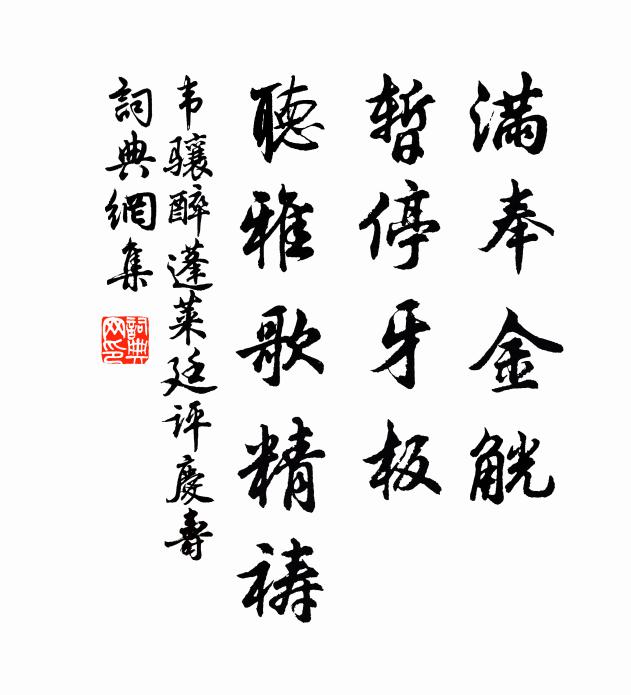 满奉金觥
暂停牙板
聽雅歌精祷
韦骧醉蓬莱廷评慶壽
詞典網集
詞典网印